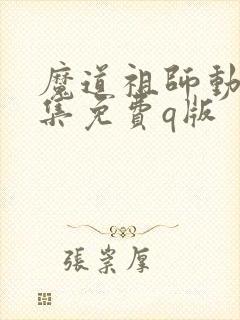 魔道祖師動
集免費q版
張崇厚